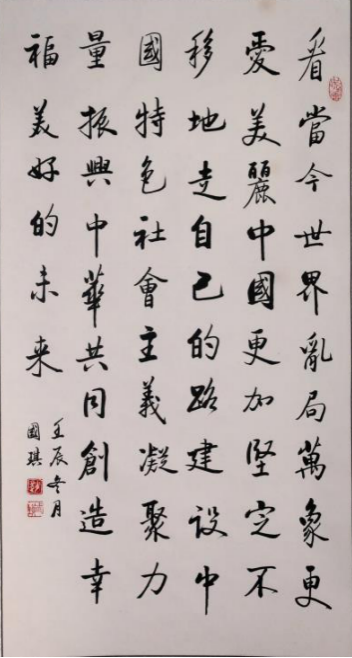 看當今世界亂局萬象更
愛美麗中國更加堅定不
移地走自己的路建設中
國特色社會主義凝聚力
量振興中華共同創造幸
福美好的未来
壬辰冬月
國琪